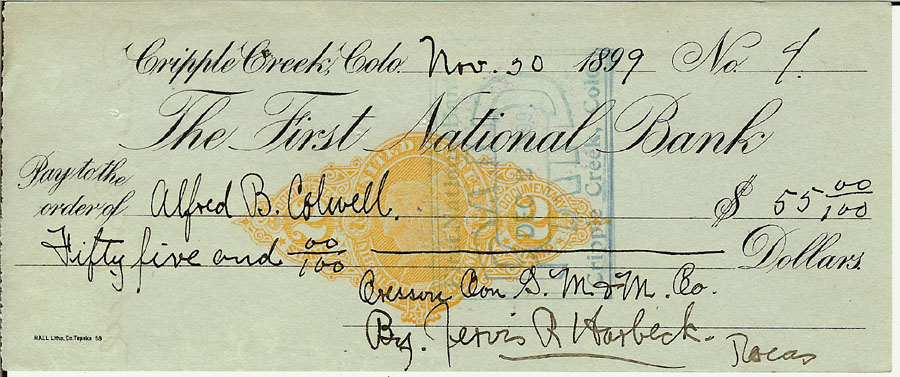 Cripple Creek, Colo. Nov. 30 1899 No. 4
The First National Bank
Pay to the
order of Alfred B. Colwell. $ 55 00/100
Fifty five and 00/100 Dollars.
Cresson Con G. M & M. Co.
By. Jervis R Harbeck.
Treas
HALL Litho. Co. Topeka
DOCUMENTARY
Cripple Creek, Colo.